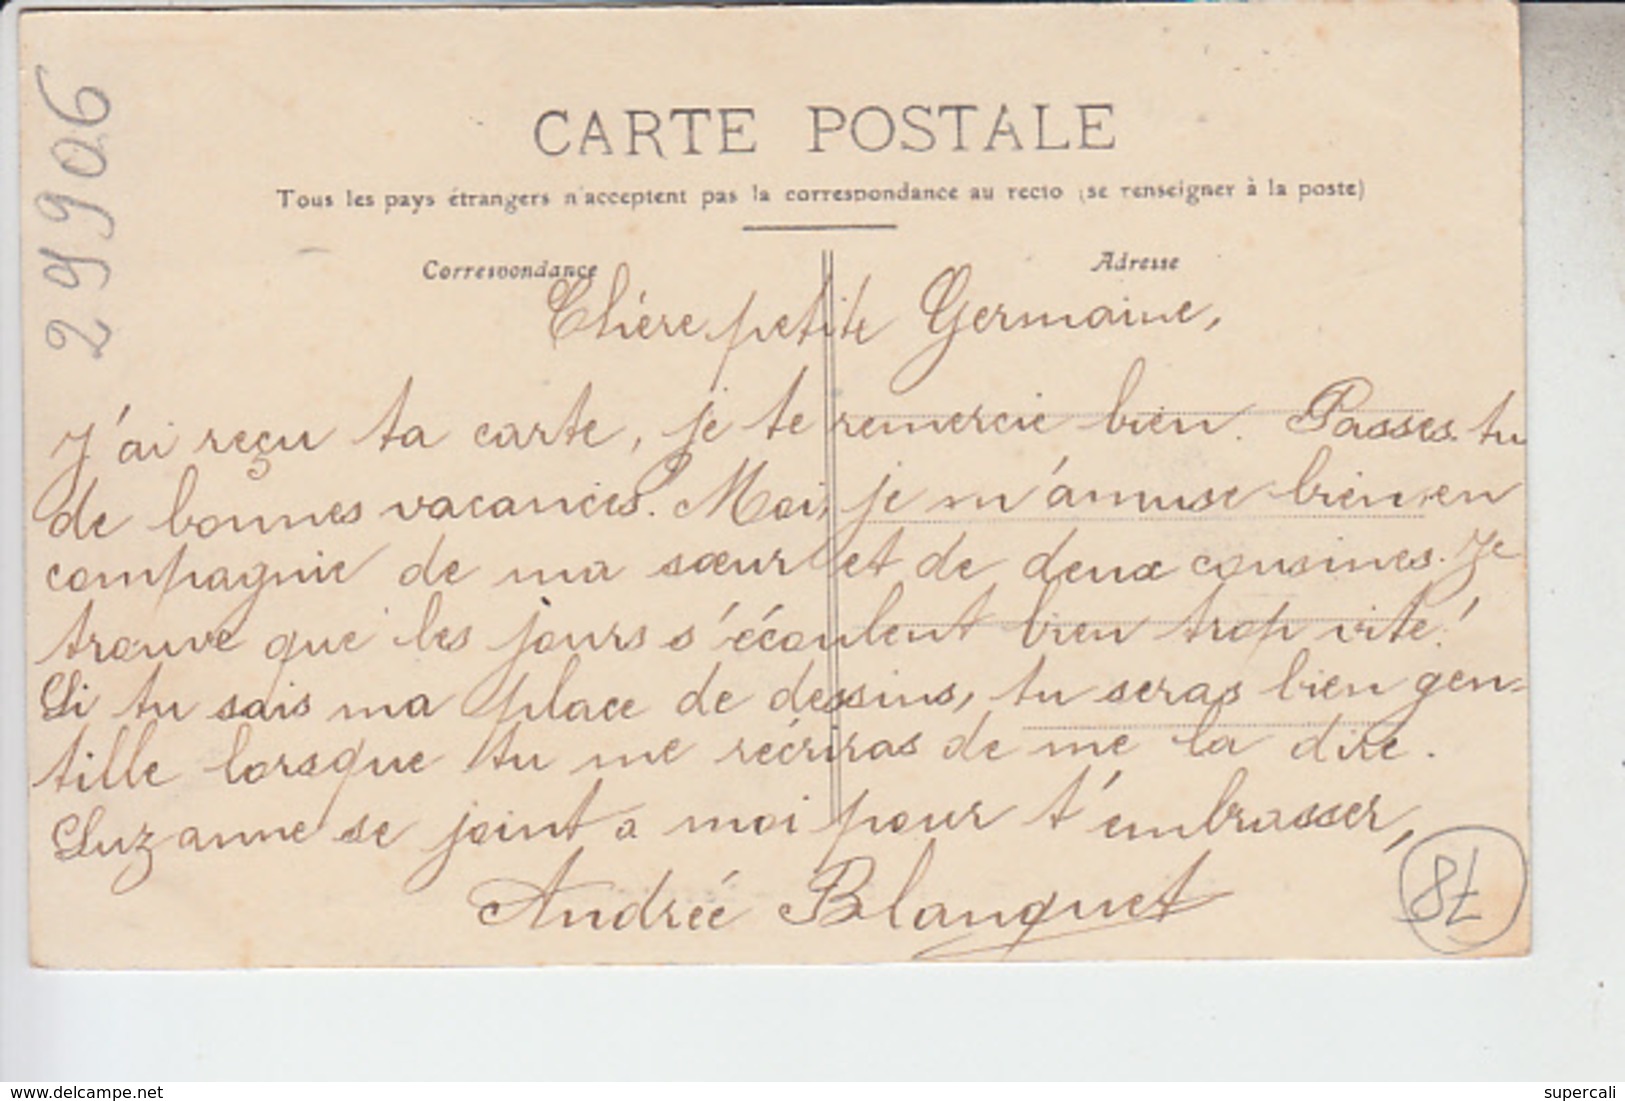 29906
CARTE POSTALE
Tous les pays étrangers n'acceptent pas la correspondance au recto (se renseigner à la poste)
Correspondance
Adresse
Chère petite Germaine,
J'ai reçu ta carte, je te remercie bien. Passes-tu
de bonnes vacances. Moi, je m'amuse bien, en
compagnie de ma sœur et de deux cousines. Je
trouve que les jours s'écoulent bien trop vite!
Si tu sais ma place de dessins, tu seras bien gen-
tille lorsque tu me récriras de me la dire.
Suzanne se joint a moi pour t'embrasser,
Andrée Blanquet
8t
www.delcampe.net
supercali